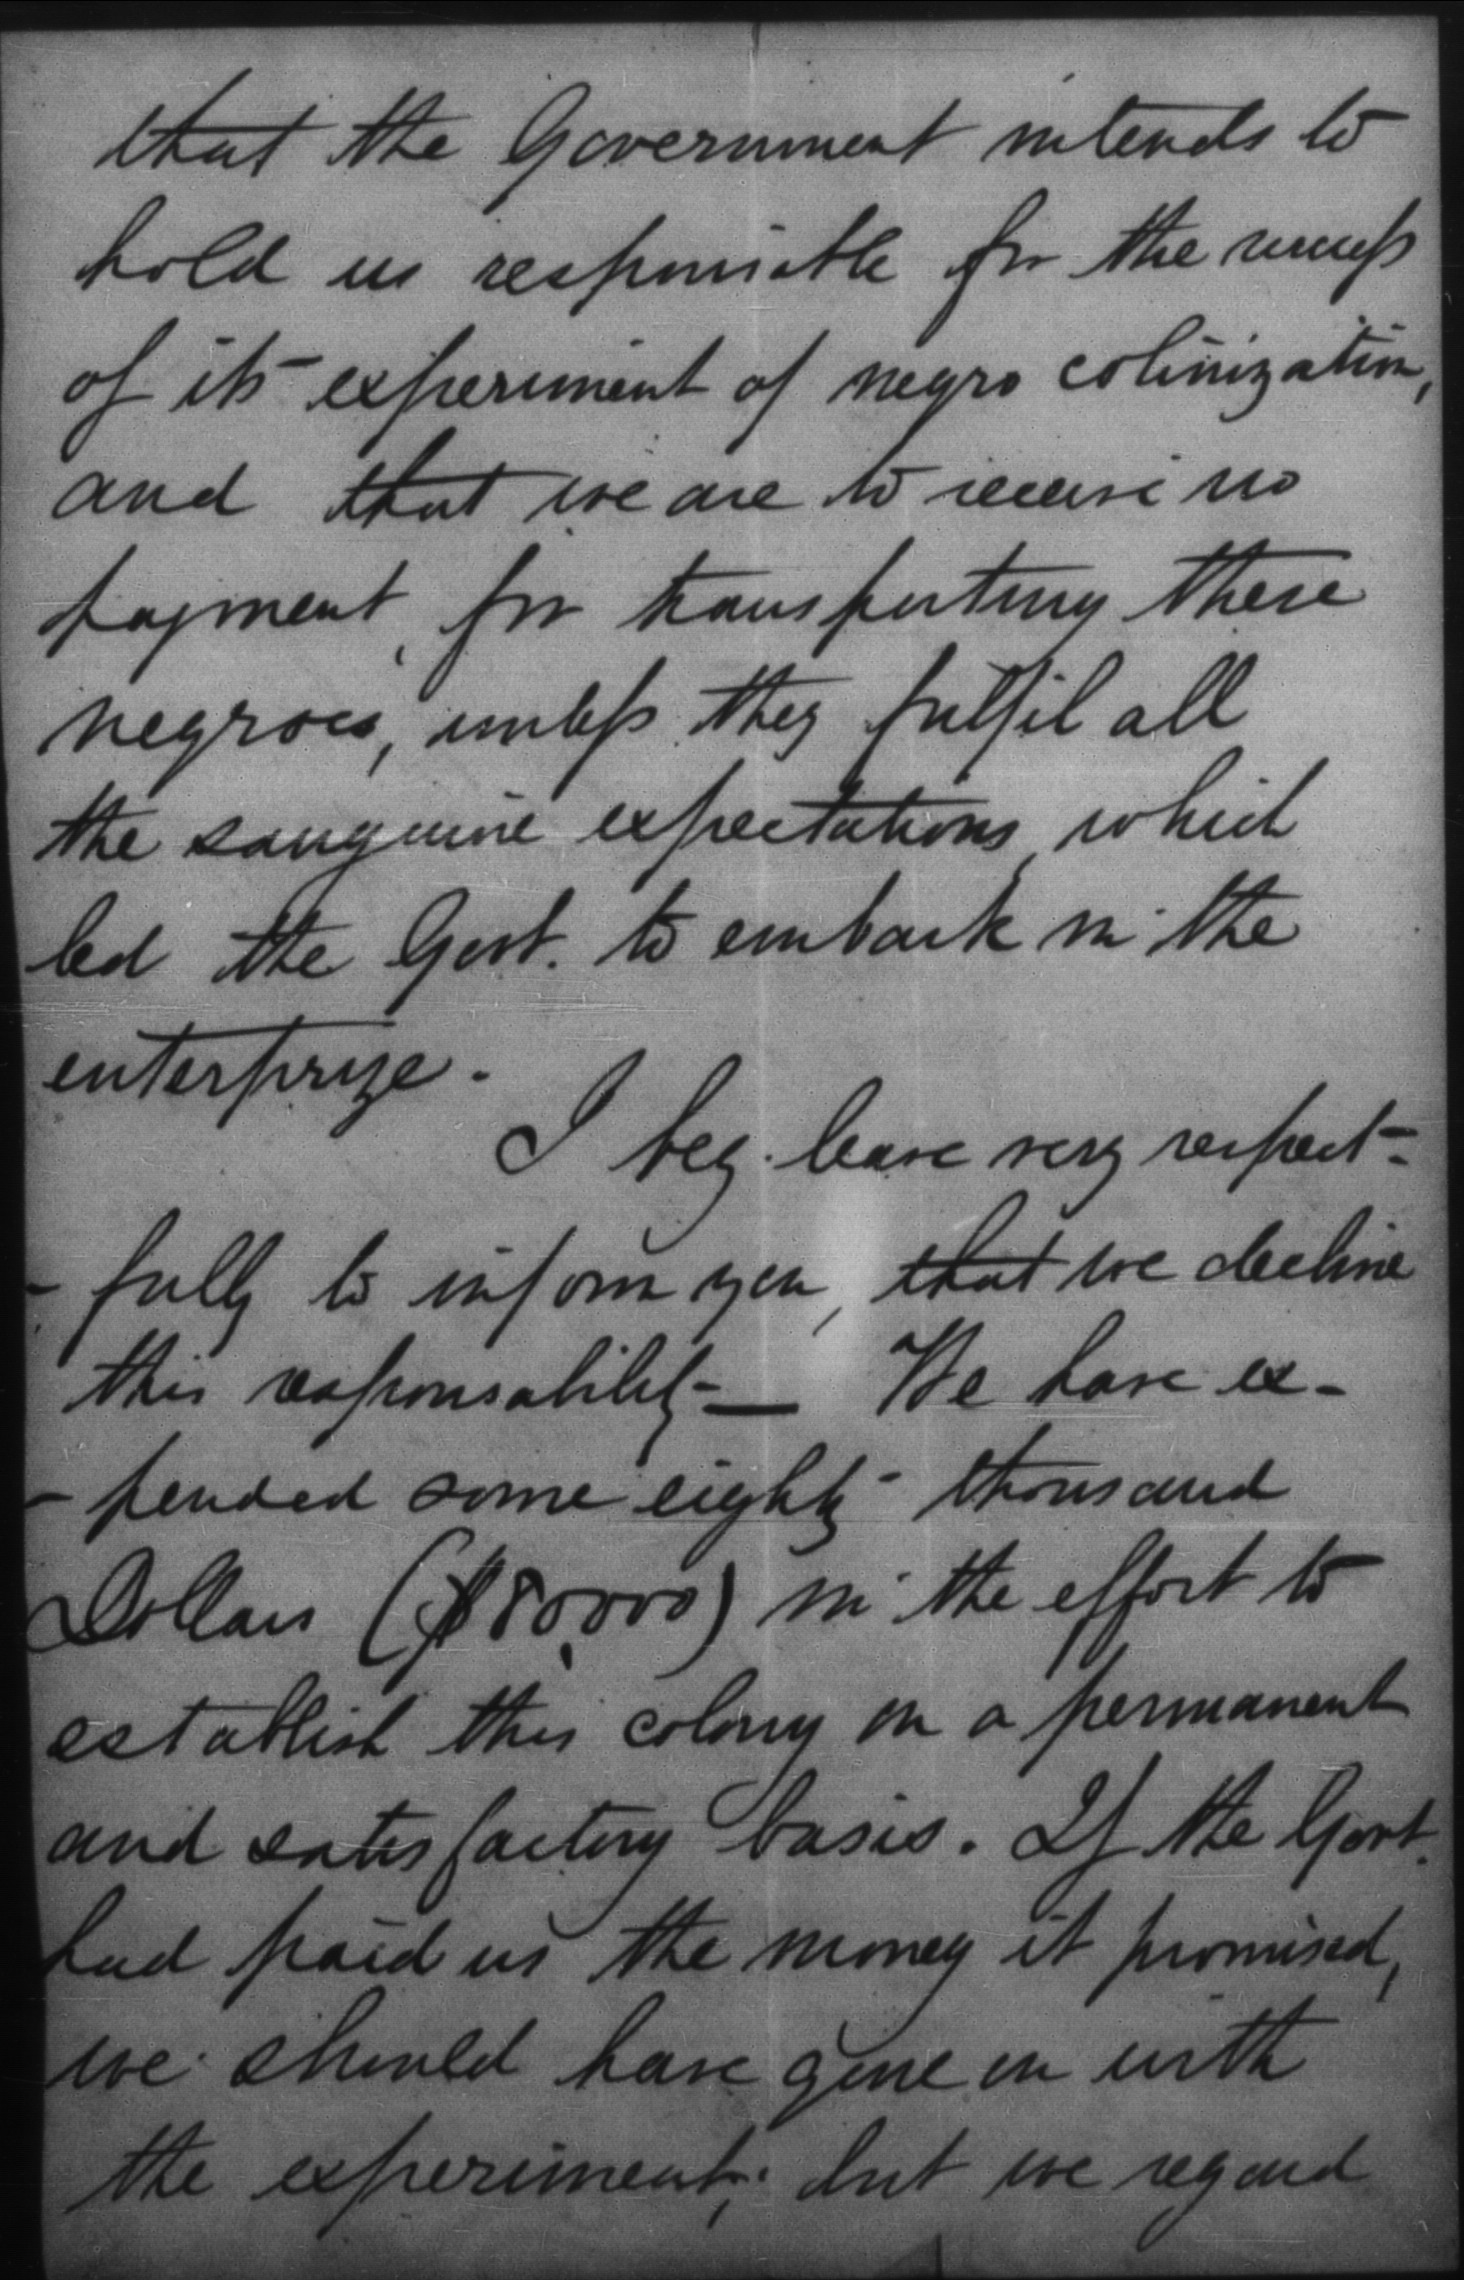 that the Government intends to
hold us responsible for the success
of its experiment of negro colonization,
and that we are to receive no
payment, for transporting these
negroes, unless they fulfil all
the sanguine expectations which
led the Govt. to embark in the
enterprize.
I beg leave very respect-
-fully to inform you, that we decline
this responsability — We have ex-
-pended some eighty thousand
Dollars ($80,000) in the effort to
establish this colony on a permanent
and satisfactory basis. If the Govt.
had paid us the money it promised,
we should have gone on with
the experiment; but we regard